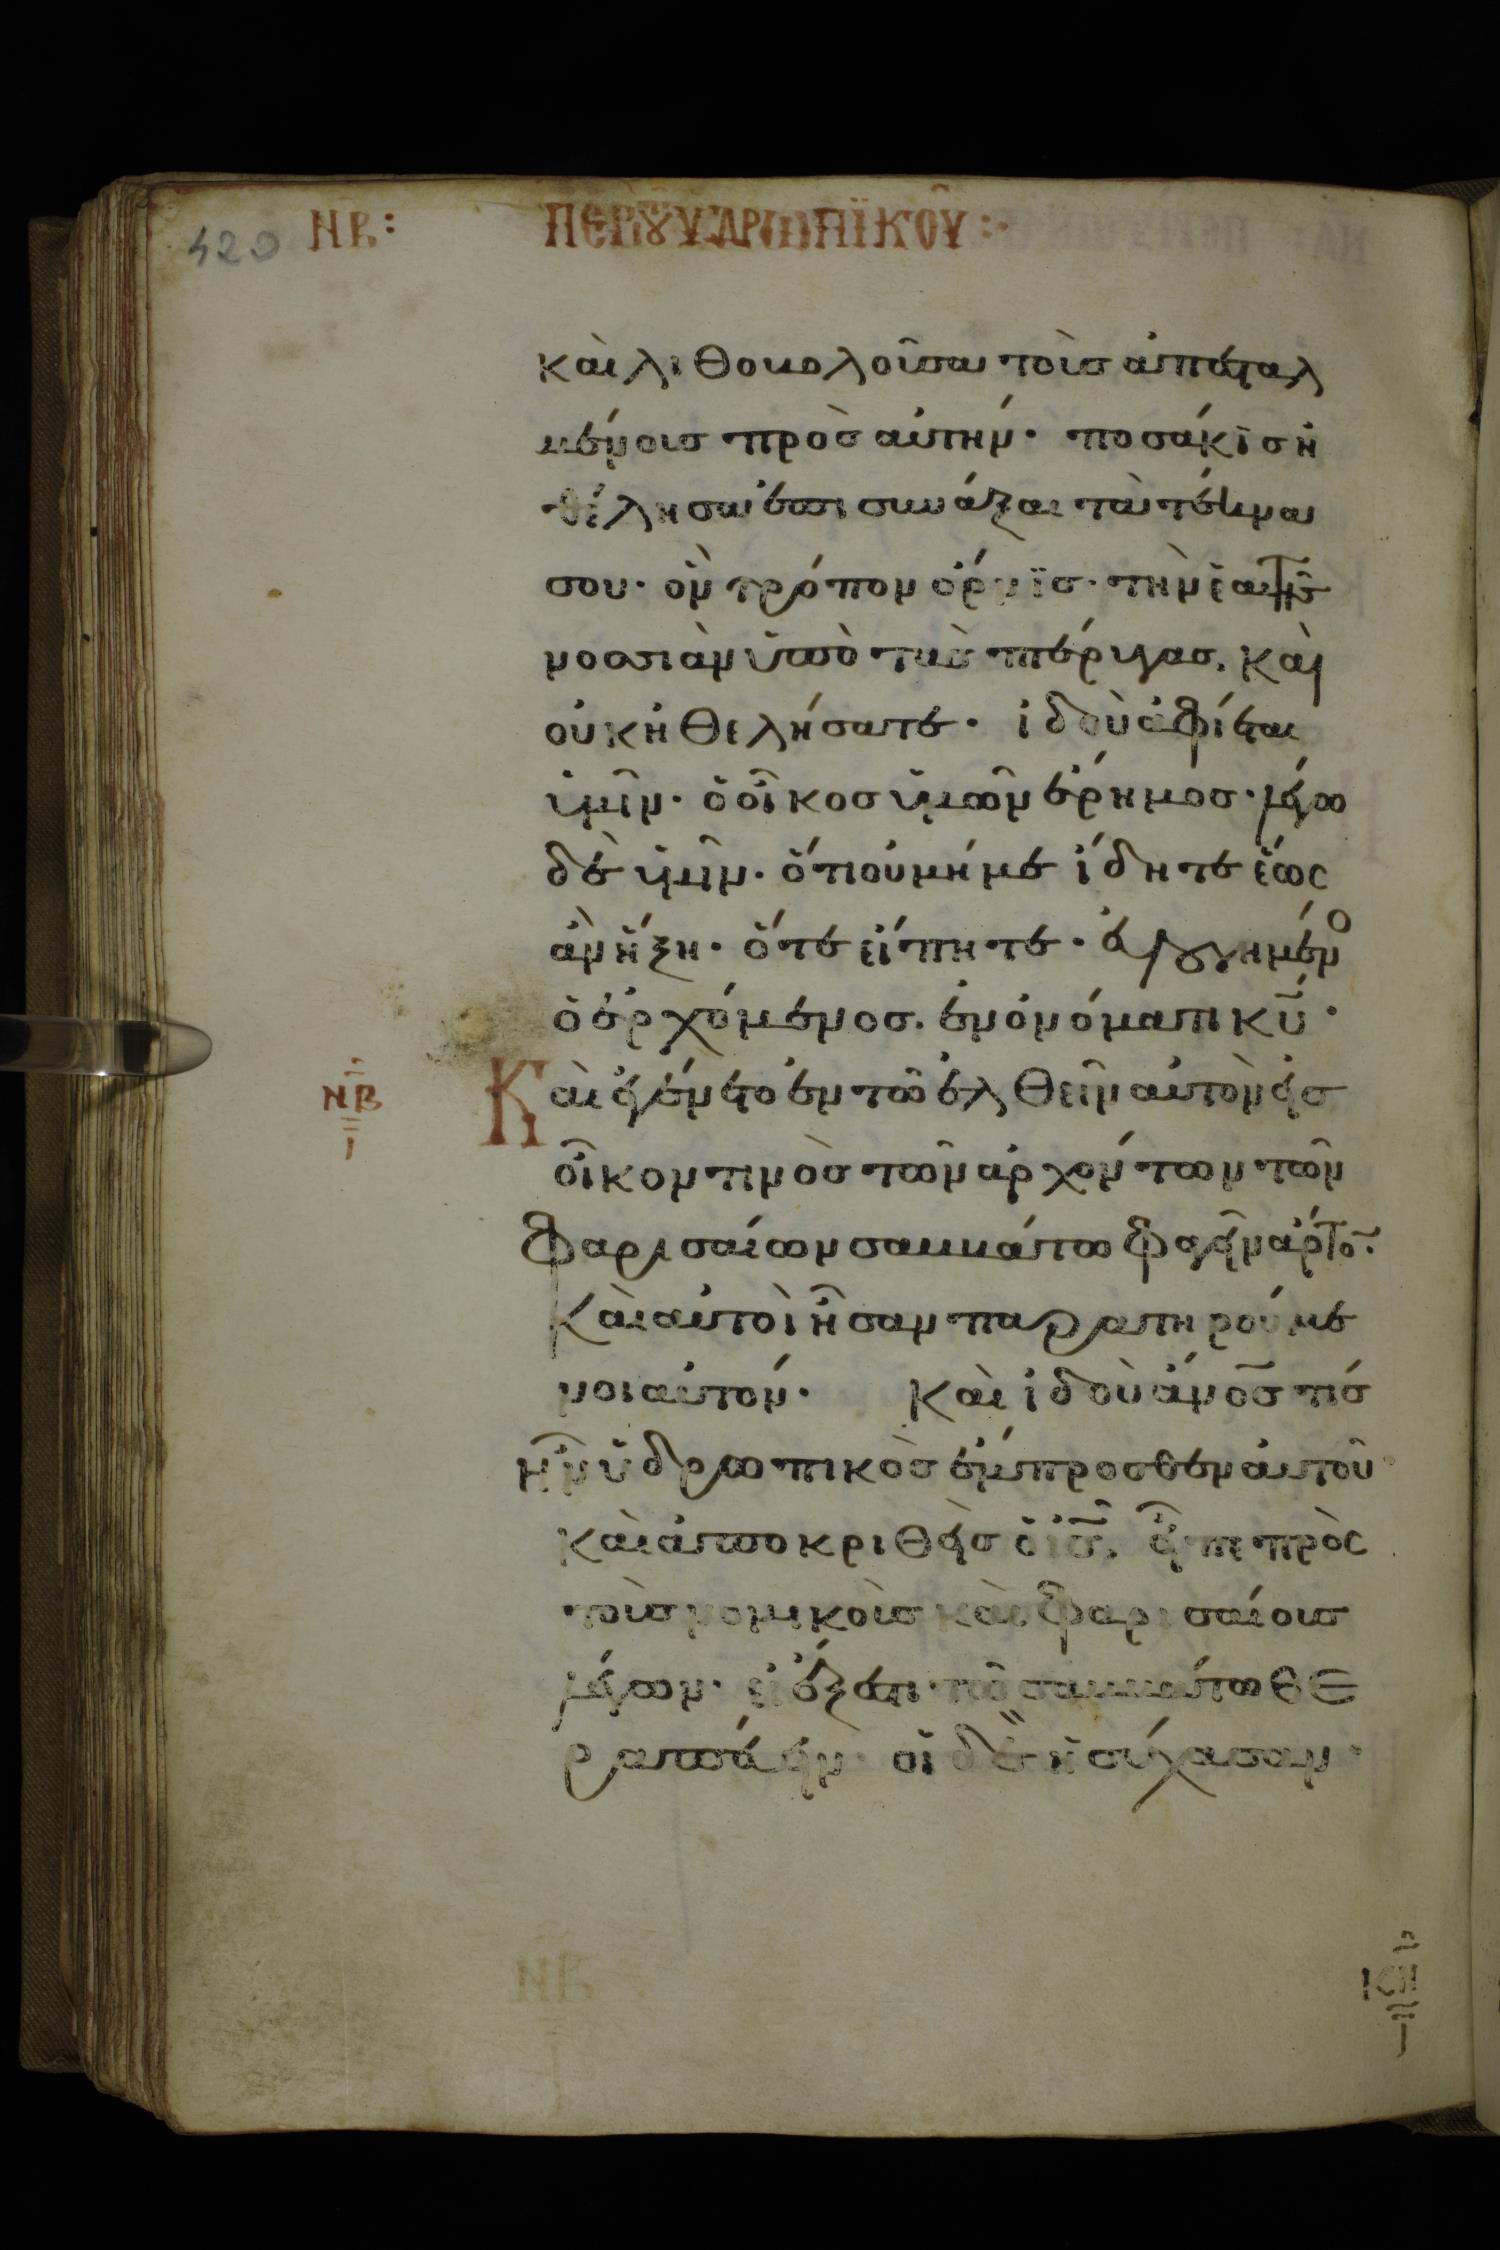 420 ΝΒ: ΠΕΡῚ ΤΟΥ ὙΔΡΩΠΪΚΟΥ:
καὶ λιθοβολοῦσα τοὺσ ἀπεσταλ
μένουσ πρὸσ αὐτήν· ποσάκϊσ ἠ
θέλησα ἐπισυνάξαι τὰ τέκνα
σου· ὃν τρόπον ὄρνϊσ· τὴν ἑαυτῆσ
νοσσιὰν ὑπὸ τὰσ πτέρυγασ. καὶ
οὐκ ἠθελήσατε· ἰδοὺ ἀφίεται
ὑμῖν· ὁ οἶκοσ ὑμῶν ἔρημοσ· λέγω
δὲ ὑμῖν· ὅτι οὐ μή με ἴδητε ἕως
ἂν ἥξη· ὅτε εἴπητε· εὐλογημένο
ὁ ἐρχόμενοσ. ἐν ὀνόματι κ̅υ̅·
ΝΒ
Ι
Καὶ ἐγένετο ἐν τῶ ἐλθεῖν αὐτὸν εἰσ
οἶκον τινὸσ τῶν ἀρχόντων τῶν
φαρισαίων σαββάτω φαγεῖν ἄρτο̅.
Καὶ αὐτοὶ ἦσαν παρατηρούμε
νοι αὐτόν· Καὶ ἰδοὺ ἄν̅ο̅σ̅ τίσ
ἦν ὑδρωπικὸσ ἔμπροσθεν αὐτοῦ
καὶ ἀποκριθεὶσ ὁ ι̅σ̅. εἶπε πρὸς
τοὺσ νομικοὺσ καὶ φαρισαίουσ
λέγων· εἰ ἔξεστι τῶ σαββάτω θε
ραπεύειν· οἱ δὲ ἡσύχασαν·